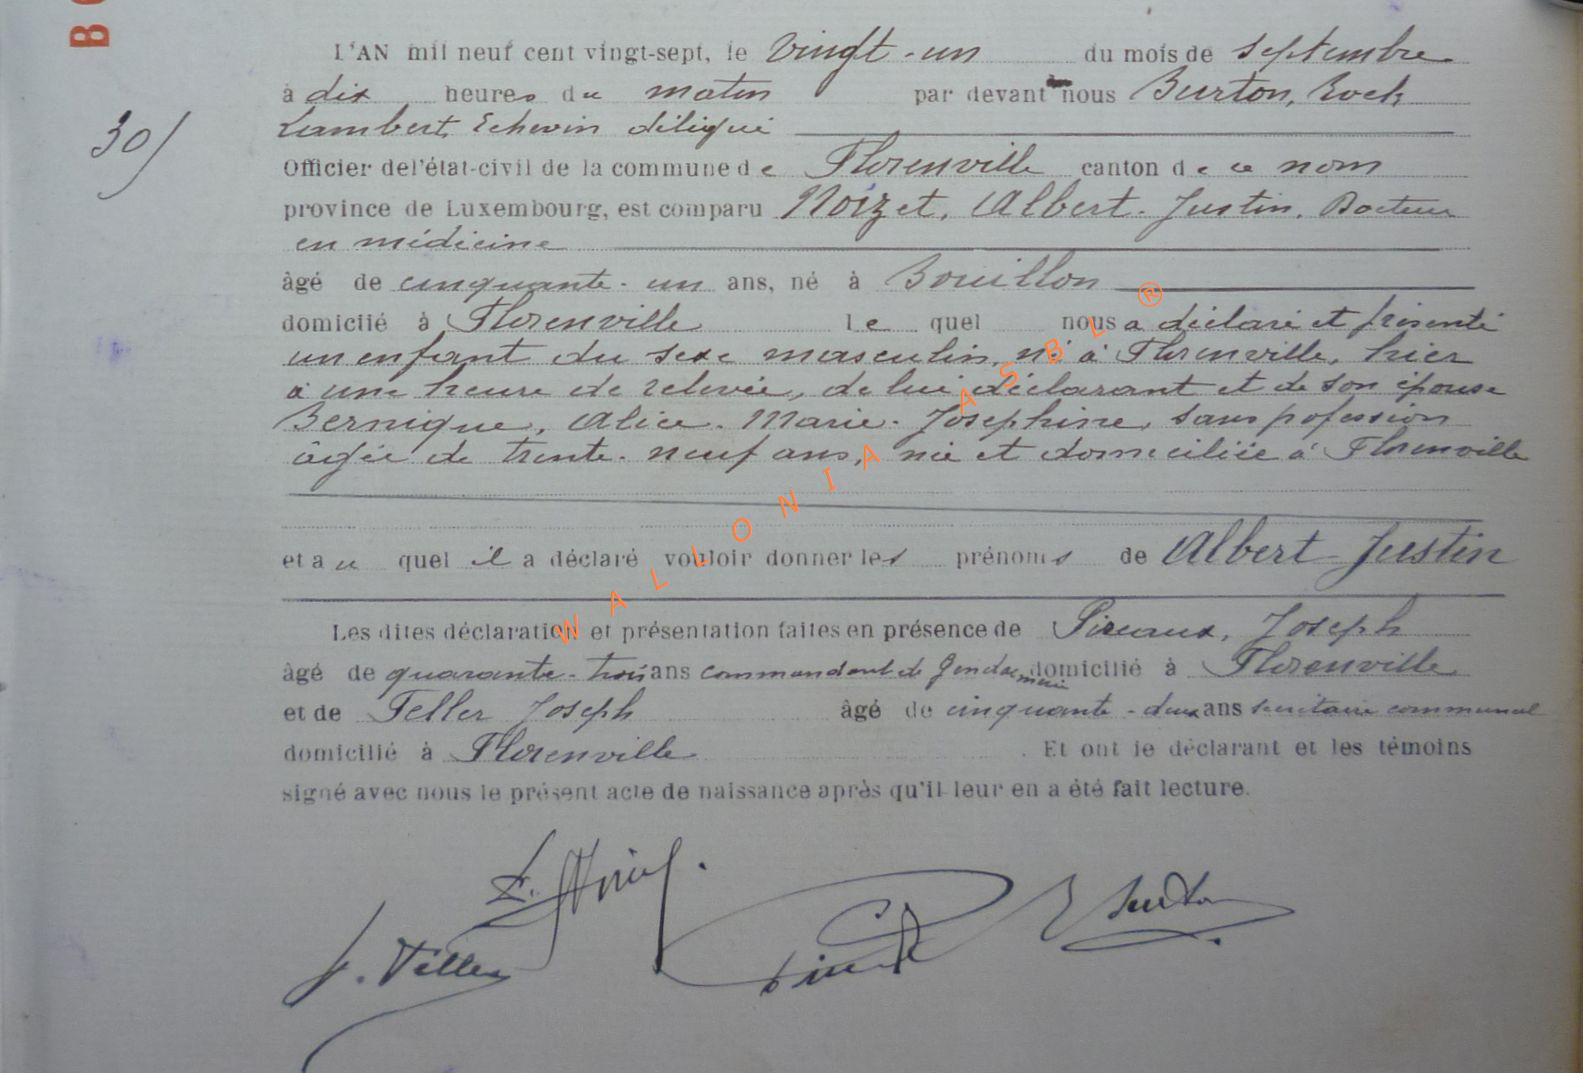 BO
L'AN mil neuf cent vingt-sept, le vingt-un du mois de septembre
à dix heures du matin par devant nous Burton, Roch
30/
Lambert, Echevin délégué
Officier del'état-civil de la commune de Florenville canton de ce nom
province de Luxembourg, est comparu Noizet, Albert-Justin, Docteur
en médicine
âgé de cinquante-un ans, né à Bouillon
domicilié à Florenville lequel nous a déclaré et présenté
un enfant du sexe masculin, né à Florenville, hier
à une heure de relevée, de lui déclarant et de son épouse
Bernique, Alice-Marie-Josephine, sans pofession
âgée de trente-neuf ans, née et domiciliée à Florenville
et au quel il a déclaré vouloir donner les prénoms de Albert-Justin
Les dites déclaration et présentation faites en présence de Pireaux, Joseph
âgé de quarante-trois ans commandant de Gendarmerie domicilié à Florenville
et de Feller Joseph âgé de cinquante-deux ans secrétaire communal
domicilié à Florenville. Et ont le déclarant et les témoins
signé avec nous le présent acte de naissance après qu'il leur en a été fait lecture.
J. Feller
R Burton
WALLONIA ASBL ®